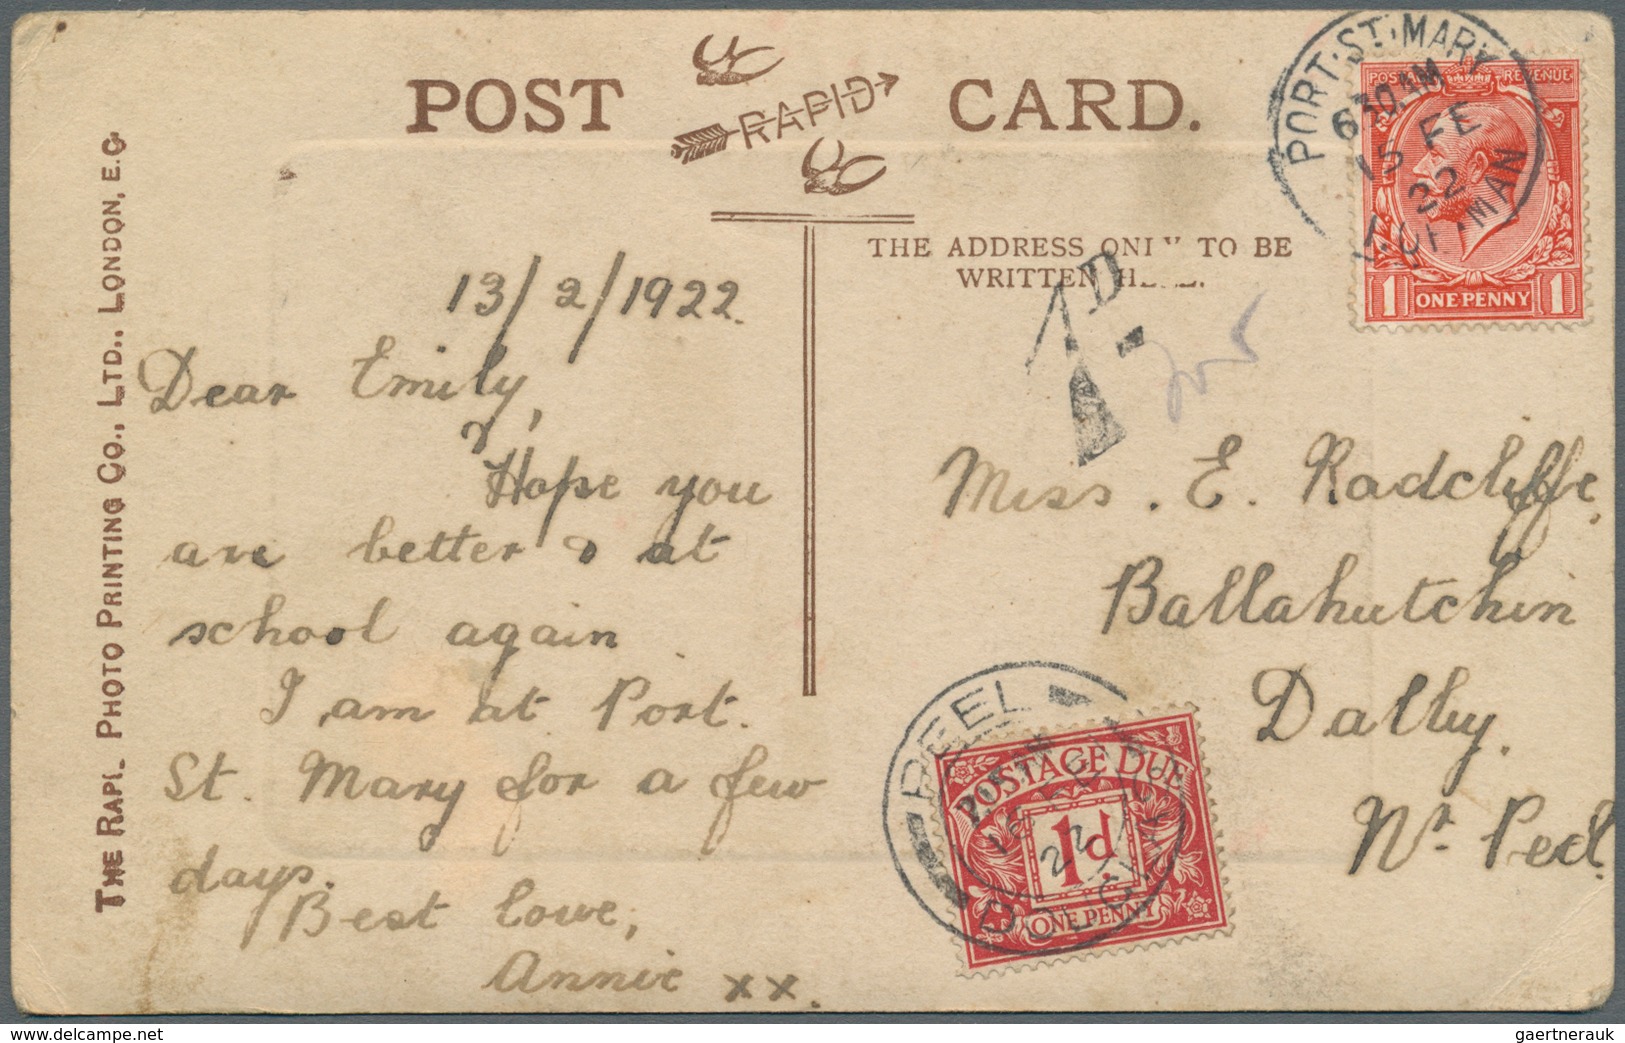 POST CARD.
RAPID
THE ADDRESS ONLY TO BE
WRITTEN HERE.
THE RAPID PHOTO PRINTING CO., LTD., LONDON, E.C.
PORT ST. MARY
6 30 AM
15 FE
22
I. OF MAN
POSTAGE REVENUE
1 ONE PENNY 1
1D
13/2/1922.
Dear Emily,
Hope you
are better & at
school again
I am at Port.
St. Mary for a few
days.
Best love,
Annie xx.
Miss. E. Radcliffe,
Ballahutchin
Dalby.
Nr. Peel.
PEEL
22
DOUGLAS
POSTAGE DUE
1d
ONE PENNY
gaertnerauk